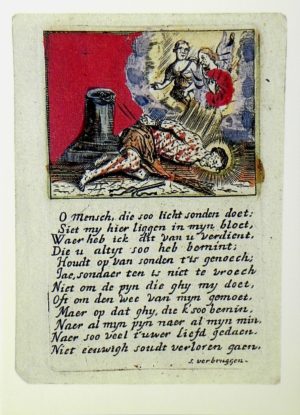 O Mensch, die soo licht sonden doet;
Siet my hier liggen in myn bloet,
Waer heb ick dit van u verdient.
Die u altyt soo heb bemint;
Houdt op van sonden t'is genoech;
Jae, sondaer ten is niet te vroech
Niet om de pyn die ghy my doet,
Oft om den wee van myn gemoet.
Maer op dat ghy, die k soo bemin,
Naer al myn pyn naer al myn min.
Naer soo veel t'uwer liefd gedaen.
Niet eeuwigh soudt verloren gaen.
s. verbruggen.